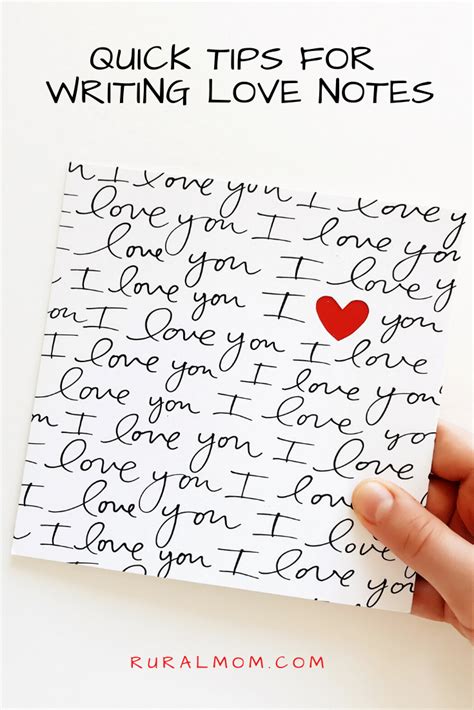 QUICK TIPS FOR
WRITING LOVE NOTES
I love you I love y
I love you I love you
I love you I love y
I love you I you
I love you I love
I love you I love you
love you I love you
I love you I love you
love you I love you
I love you I love you
I love you I love you
RURALMOM.COM